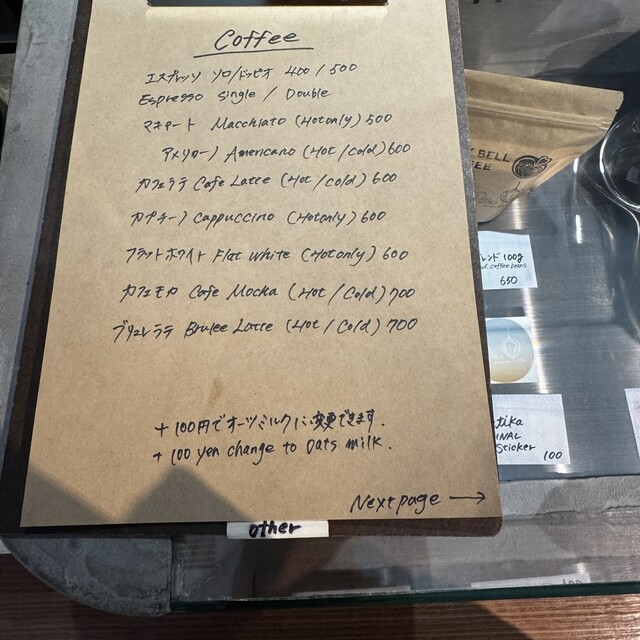 Coffee
エスプレッソ ソロ/ドッピオ 400 / 500
Espresso single / Double
マキアート Macchiato (Hot only) 500
アメリカーノ Americano (Hot / Cold) 600
カフェラテ Cafe Latte (Hot / Cold) 600
カプチーノ Cappuccino (Hot only) 600
フラットホワイト Flat white (Hot only) 600
カフェモカ Cafe Mocka (Hot / Cold) 700
ブリュレラテ Brulee Latte (Hot / Cold) 700
+ 100円でオーツミルクに変更できます.
+ 100 yen change to Oats milk.
Next page →
other
BELL
レンド 100g
coffee beans
650
tika
INAL
Sticker 100